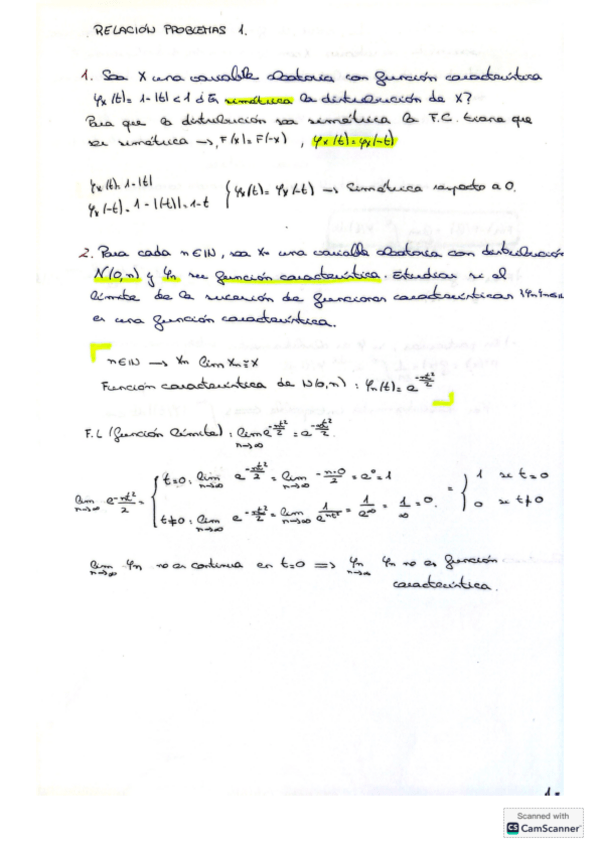 RELACIÓN PROBLEMAS 1.
1. Sea X una variable aleatoria con función característica
φx(t)= 1-|t|<1 ¿Es simétrica la distribución de X?
Para que la distribución sea simétrica la F.C. tiene que
ser simétrica → F(x)=F(-x) , φx(t)=φx(-t)
φx(t)= 1-|t|
φx(-t)= 1-|(-t)|= 1-t
{ φx(t)= φx(-t) → Simétrica respecto a 0.
2. Para cada n∈IN, sea Xn una variable aleatoria con distribución
N(0,n) y φn su función característica. Estudiar si el
límite de la sucesión de funciones características {φn}n∈IN
es una función característica.
n∈IN → Xn lim Xn≡X
Función característica de N(0,n) : φn(t)= e^-nt²/2
F.L (función límite) : lim n→∞ e^-nt²/2 = e^-nt²/2.
lim n→∞ e^-nt²/2 = { t=0: lim n→∞ e^-nt²/2 = lim n→∞ -n·0/2 = e⁰=1
t≠0: lim n→∞ e^-nt²/2 = lim n→∞ 1/e^nt² = 1/e^∞ = 1/∞ = 0.
= { 1 si t=0
0 si t≠0
lim n→∞ φn no es continua en t=0 ⟹ φn n→∞ φn no es función
característica.
1.-
Scanned with
CS CamScanner